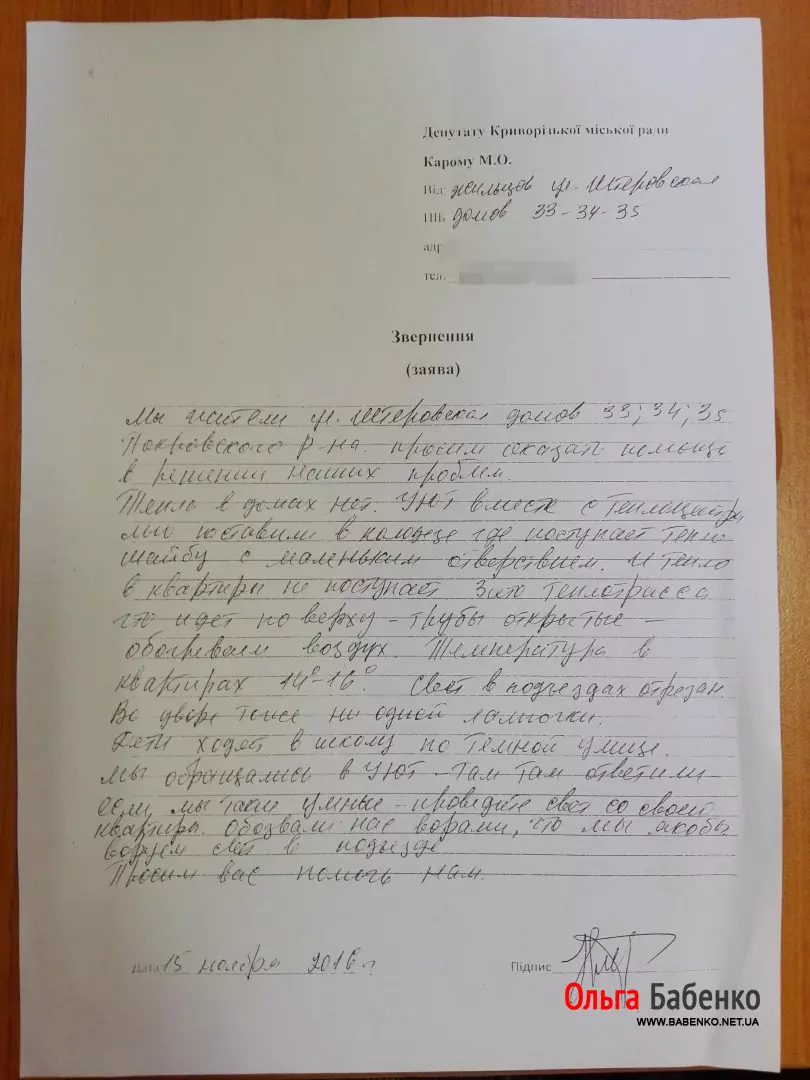 Депутату Криворізької міської ради
Карому М.О.
Від: жильцов ул. Штеровская
ПІБ домов 33-34-35
адр
тел.
Звернення
(заява)
Мы жители ул. Штеровская домов 33; 34; 35
Покровского р-на. просим оказать помощь
в решении наших проблем.
Тепло в домах нет. УЮТ вместе с теплоцентра
лью поставили в колодце где поступает тепло
шайбу с маленьким отверствием. И тепло
в квартиры не поступает Зато теплотрасса
что идет по верху - трубы открытые -
обогреваем воздух. Температура в
квартирах 14°-16°. Свет в подъездах отрезан.
Во дворе тоже ни одной лампочки.
Дети ходят в школу по тёмной улице.
Мы обращались в Уют - Там там ответили
если мы такие умные - проведите свет со своей
квартиры. обозвали нас ворами, что мы якобы
воруем свет в подъезде
Просим вас помочь нам.
Дата 15 ноября 2016 г
Підпис
Ольга Бабенко
WWW.BABENKO.NET.UA